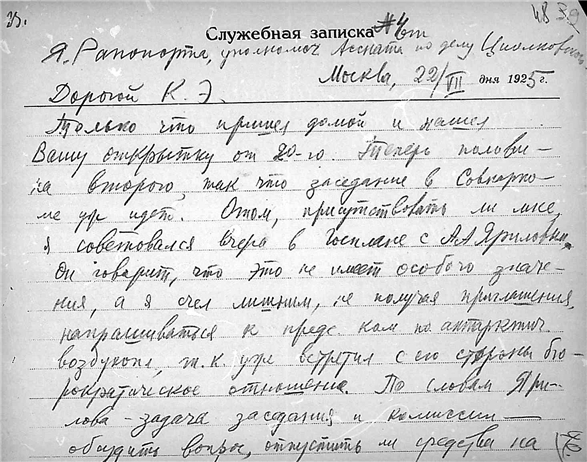 33.
48 39
Служебная записка № 4 от
Я. Рапопорта, уполномоч Ассната по делу Циолковского
Москва, 22/VII дня 1925 г.
Дорогой К. Э.
Только что пришел домой и нашел
Вашу открытку от 20-го. Теперь полови-
на второго, так что заседание в Совнарко-
ме уж идет. О том, присутствовать ли мне,
я советовался вчера в Госплане с А.А Яриловым.
Он говорит, что это не имеет особого значе-
ния, а я счел лишним, не получая приглашения,
напрашиваться к предс. ком по антарктич.
воздухопл, т.к. уже встретил с его стороны бю-
рократическое отношение. По словам Яри-
лова - задача заседания и комиссии —
обсудить вопрос, отпустить ли средства на